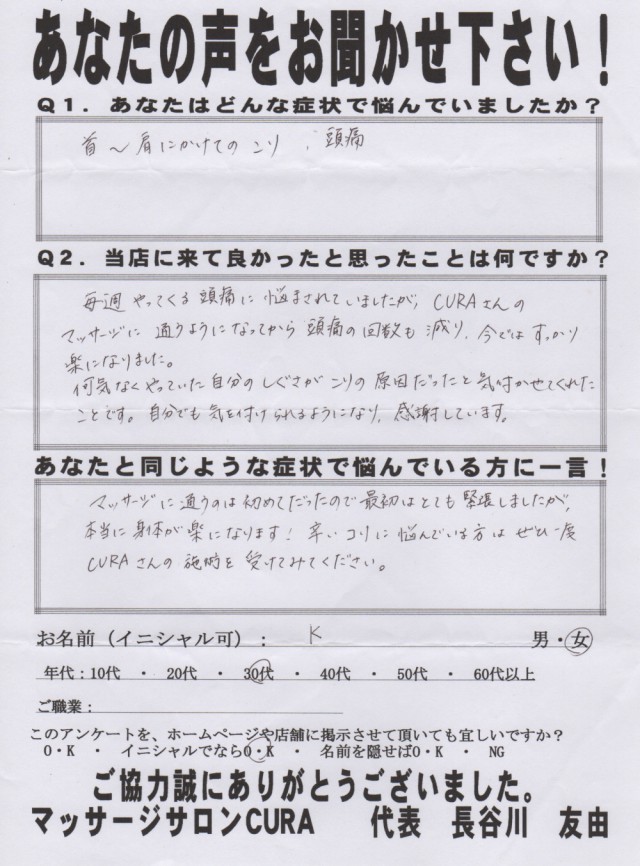 あなたの声をお聞かせ下さい！
Q1．あなたはどんな症状で悩んでいましたか？
首～肩にかけてのこり、頭痛
Q2．当店に来て良かったと思ったことは何ですか？
毎週やってくる頭痛に悩まされていましたが、CURAさんの
マッサージに通うようになってから頭痛の回数も減り、今ではすっかり
楽になりました。
何気なくやっていた自分のしぐさがこりの原因だったと気付かせてくれた
ことです。自分でも気を付けられるようになり、感謝しています。
あなたと同じような症状で悩んでいる方に一言！
マッサージに通うのは初めてだったので最初はとても緊張しましたが、
本当に身体が楽になります！辛いコリに悩んでいる方はぜひ一度
CURAさんの施術を受けてみてください。
お名前（イニシャル可）： K 男・女
年代：10代 ・ 20代 ・ 30代 ・ 40代 ・ 50代 ・ 60代以上
ご職業：
このアンケートを、ホームページや店舗に掲示させて頂いても宜しいですか？
O・K ・ イニシャルでならO・K ・ 名前を隠せばO・K ・ NG
ご協力誠にありがとうございました。
マッサージサロンCURA 代表 長谷川 友由